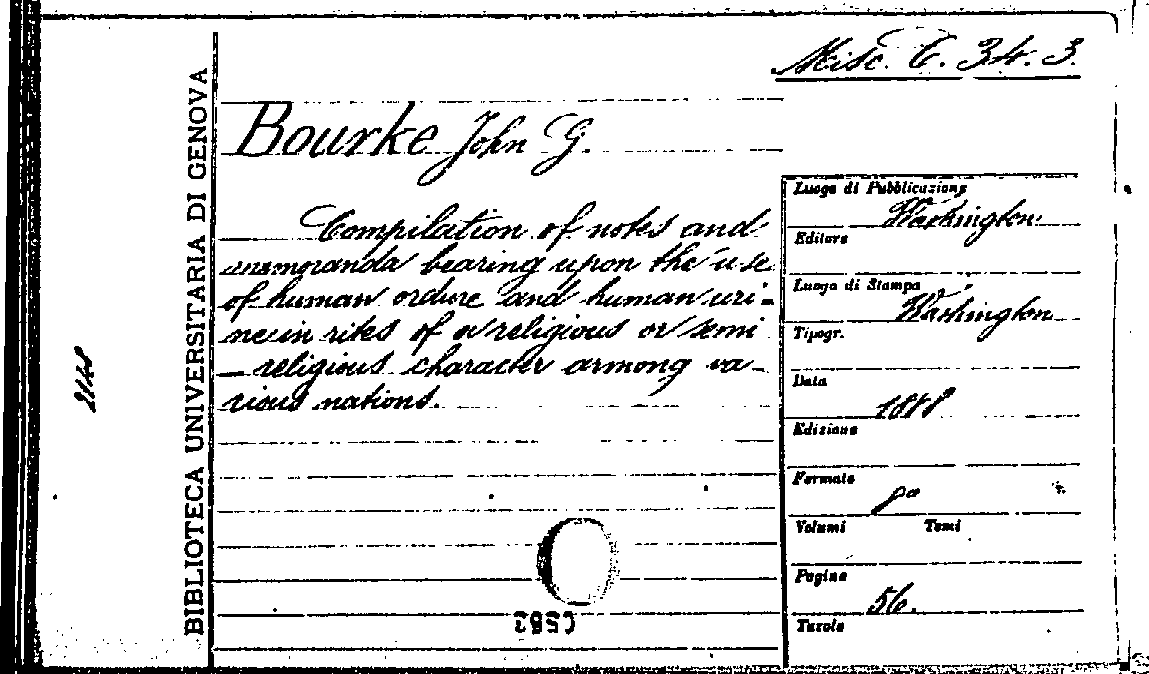 Misc. C. 34. 3.
BIBLIOTECA UNIVERSITARIA DI GENOVA
Bourke John G.
Compilation of notes and
memoranda bearing upon the use
of human ordure and human uri-
ne in rites of a religious or semi
- religious character armong va-
rious nations.
Luogo di Pubblicazione
Washington
Editore
Luogo di Stampa
Washington
Tipogr.
Data
Edizione
Formato
8°
Volumi Tomi
Pagine
56.
Tavole